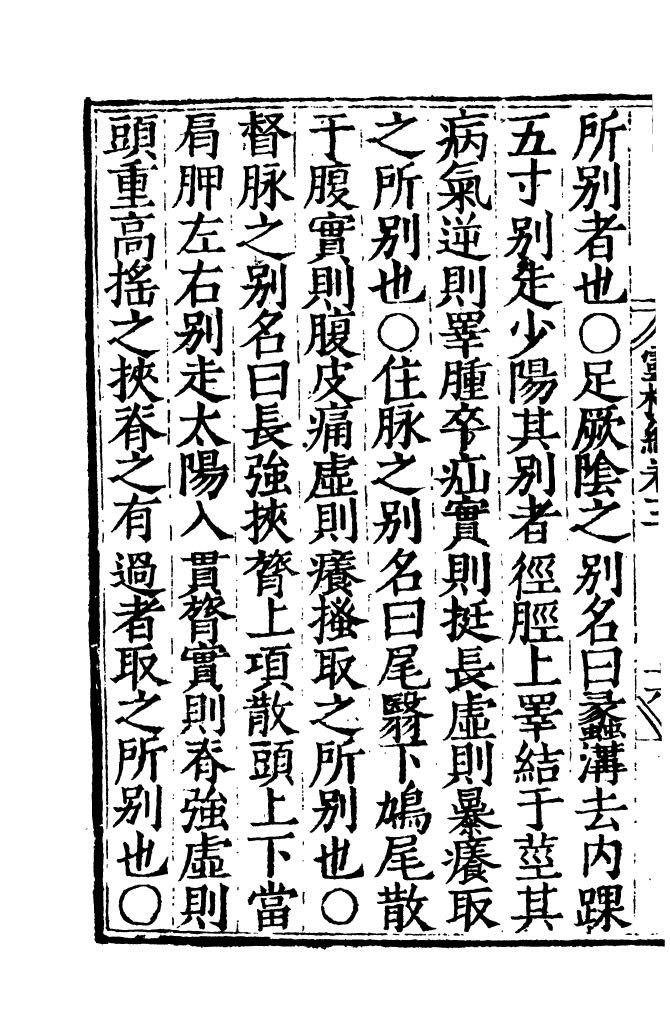 所别者也〇足厥隂之别名曰蠡溝去内踝
五寸别走少陽其别者徑脛上睪結于莖其
病氣逆則睪腫卒疝實則挺長虛則暴癢取
之所别也〇住脉之别名曰尾翳下鳩尾散
于腹實則腹皮痛虛則癢搔取之所别也〇
督脉之别名曰長強挾膂上項散頭上下當
肩胛左右别走太陽入貫膂實則脊強虛則
頭重高摇之挾脊之有過者取之所别也〇